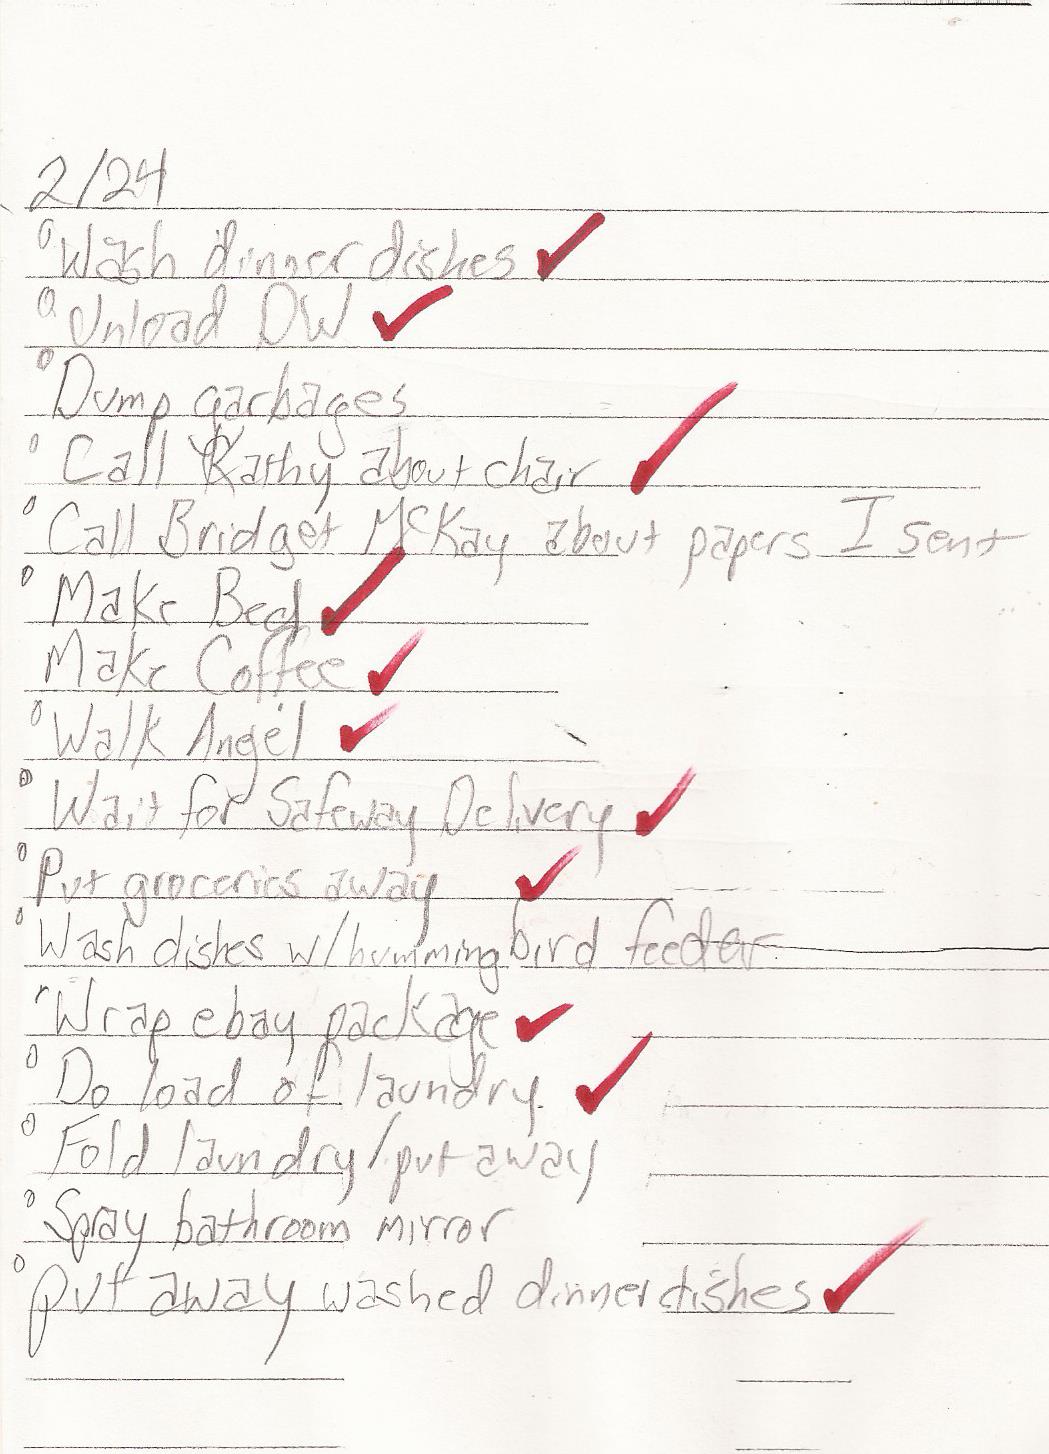 2/24
Wash dinner dishes ✓
Unload DW ✓
Dump garbages
Call Kathy about chair ✓
Call Bridget McKay about papers I sent
Make Bed ✓
Make Coffee ✓
Walk Angel ✓
Wait for Safeway Delivery ✓
Put groceries away ✓
Wash dishes w/hummingbird feeder
Wrap ebay package ✓
Do load of laundry ✓
Fold laundry/put away
Spray bathroom mirror
Put away washed dinner dishes ✓